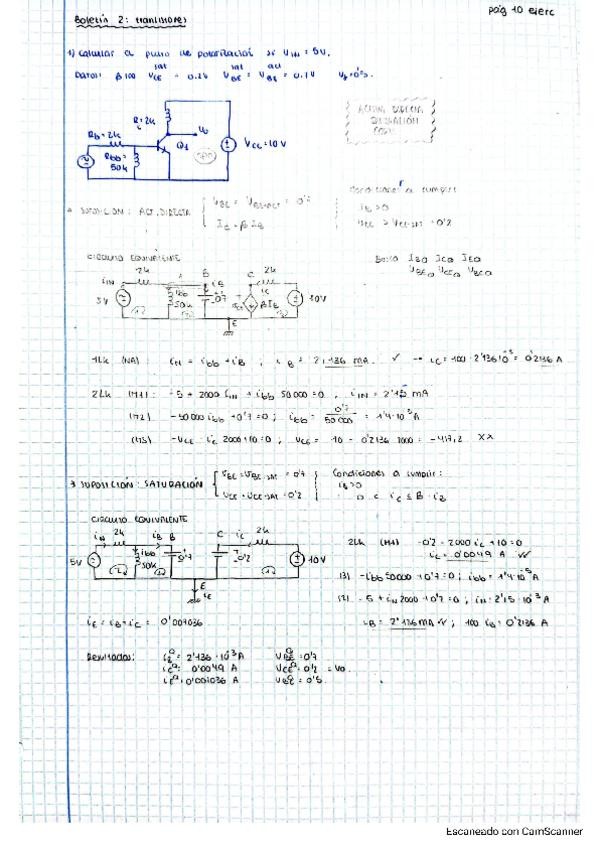 pág 10 ejerc
Boletín 2: transistores
1) Calcular el punto de polarización si VIN = 5V.
Datos: β100 VCE sat = 0.2V VBE sat = VBE act = 0.7V Vγ = 0'5.
R = 2k
c
Rb = 2k
Vo
Q1
VCC = 10V
Rbb =
50k
ACTIVA DIRECTA
SATURACIÓN
CORTE
SUPOSICIÓN: ACT. DIRECTA
VBE = VBE-ACT = 0'7
IC = β IB
Condiciones a cumplir
IB > 0
VCE > VCE-SAT = 0'2
CIRCUITO EQUIVALENTE
Busco IBQ ICQ IEQ
VBEQ VCEQ VBCQ
iIN 2k B iB C 2k
5V ibb 50k 0'7 iC βIB 10V
E
1LK (NA): iIN = ibb + iB ; iB = 2'136 mA. ✓ → iC = 100 · 2'136·10⁻³ = 0'2136 A
2LK (M1): -5 + 2000 iIN + ibb 50000 = 0 , iIN = 2'15 mA
(M2) -50000 ibb + 0'7 = 0 ; ibb = 0'7/50000 = 1'4·10⁻⁵ A
(M3) -VCE - iC 2000 + 10 = 0 , VCE = 10 - 0'2136 · 2000 = -417,2 XX
3 SUPOSICIÓN: SATURACIÓN
VBE = VBE-SAT = 0'7
VCE = VCE-SAT = 0'2
Condiciones a cumplir:
iB > 0
0 < iC ≤ β · iB
CIRCUITO EQUIVALENTE
iN 2k iB B C iC 2k
5V ibb 50k 0'7 0'2 10V
E
iE
2LK (M1) -0'2 - 2000 iC + 10 = 0
iC = 0'0049 A ✓✓
(3) -ibb 50000 + 0'7 = 0 ; ibb = 1'4·10⁻⁵ A
(2) -5 + iN 2000 + 0'7 = 0 , iN = 2'15·10⁻³ A
iB = 2'136 mA ✓✓ ; 100 iB = 0'2136 A
iE = iB + iC = 0'007036
Resultados: iBQ = 2'136·10⁻³ A VBEQ = 0'7
iCQ = 0'0049 A VCEQ = 0'2 = Vo
iEQ = 0'007036 A VBCQ = 0'5.
Escaneado con CamScanner